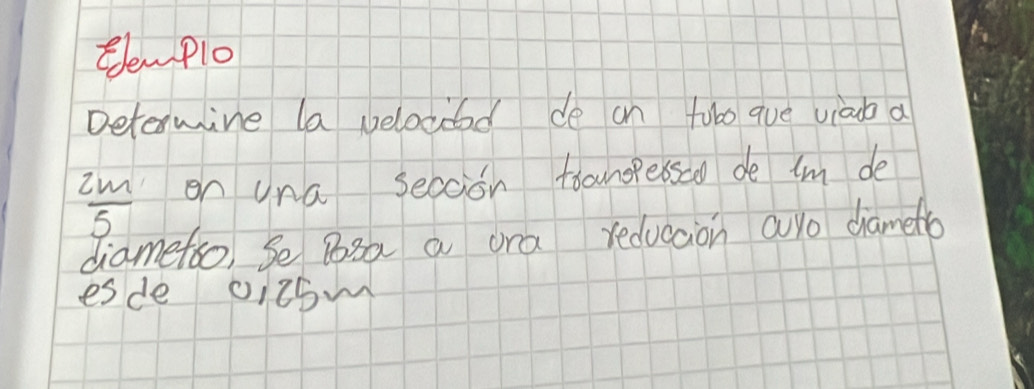 Ejemplo
Determine la velocidad de un tubo que viaja a
2m/s en una sección transversal de 1m de
diametro, se pasa a una reducción cuyo diametro
es de 0,25m